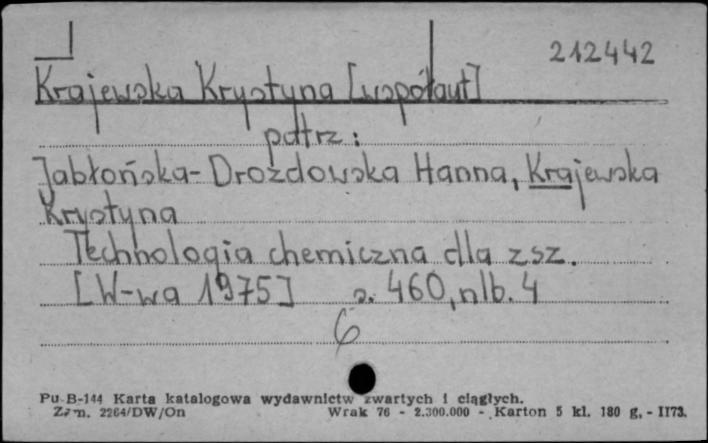 212442
Krajewska Krystyna [współaut]
patrz:
Jabłońska-Drozdowska Hanna, Krajewska
Krystyna
Technologia chemiczna dla zsz.
[W-wa 1975] s. 460, nlb. 4
6
Pu-B-144 Karta katalogowa wydawnictw zwartych i ciągłych.
Zam. 2264/DW/On Wrak 76 - 2.300.000 - Karton 5 kl. 180 g. - II73.